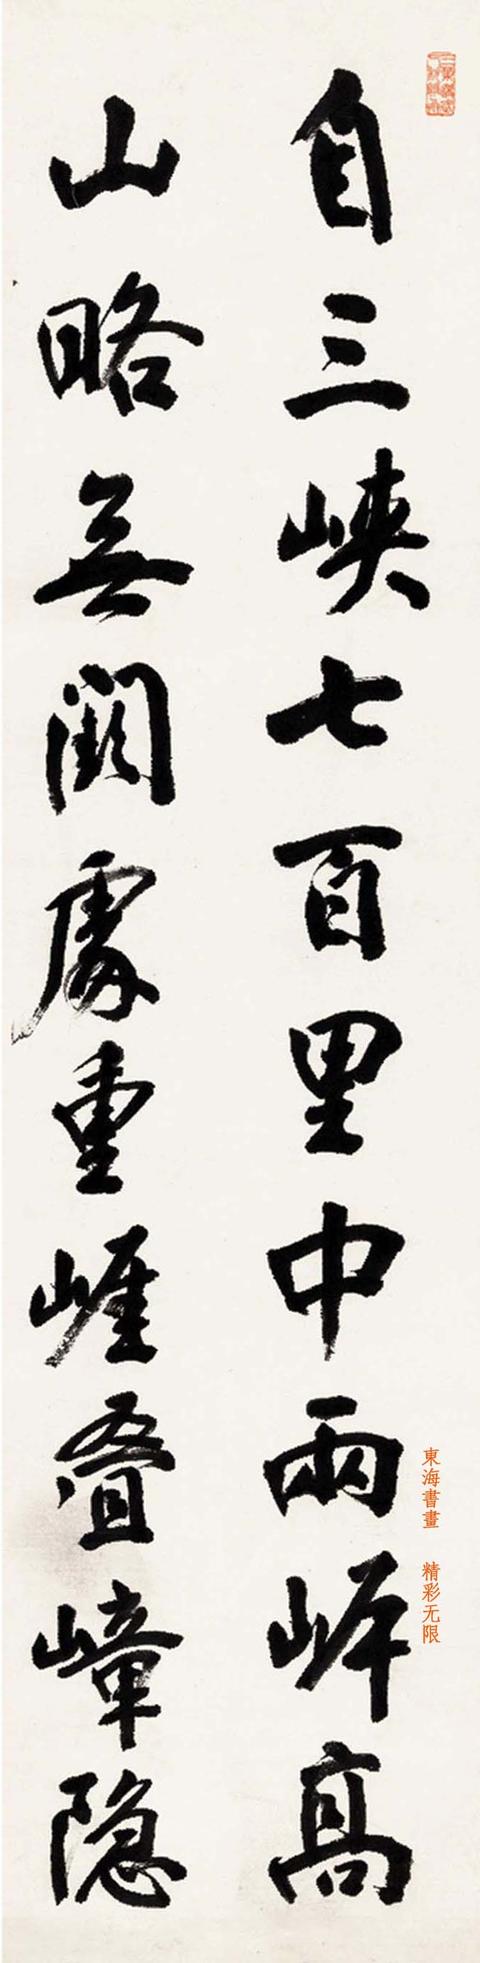 自三峽七百里中兩岸高
山略無闕處重崖叠嶂隐
東海書畫 精彩无限